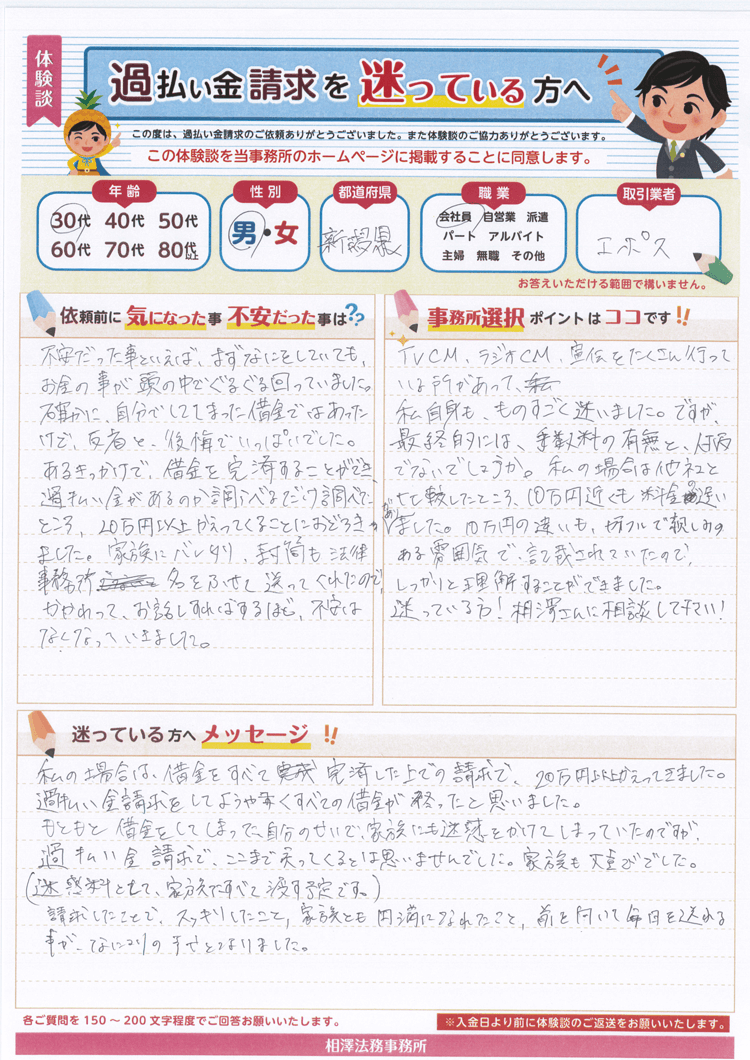 体験談
過払い金請求を迷っている方へ
この度は、過払い金請求のご依頼ありがとうございました。また体験談のご協力ありがとうございます。
この体験談を当事務所のホームページに掲載することに同意します。
年齢
30代 40代 50代
60代 70代 80代以上
性別
男・女
都道府県
新潟県
職業
会社員 自営業 派遣
パート アルバイト
主婦 無職 その他
取引業者
エポス
お答えいただける範囲で構いません。
依頼前に気になった事不安だった事は??
不安だった事といえば、まずなにをしていても、
お金の事が頭の中でぐるぐる回っていました。
確かに、自分でしてしまった借金ではあった
けど、反省と、後悔でいっぱいでした。
あるきっかけで、借金を完済することができ、
過払い金があるのか調べるだけ調べた
ところ、20万円以上かえってくることにおどろき
ました。家族にバレずに、封筒も法律
事務所名をふせて送ってくれたので、
お話しすればするほど、不安は
なくなっていきました。
事務所選択ポイントはココです!!
TVCM、ラジオCM、宣伝をたくさん行って
いる所があって、
私自身も、ものすごく迷いました。ですが、
最終的には、手数料の有無と、
でないでしょうか。私の場合は他社と
比較したところ、10万円近くも料金の違い
がありました。10万円の違いも、親しみの
ある雰囲気で、記載されていたので、
しっかりと理解することができました。
迷っている方!相澤さんに相談して下さい!
迷っている方へメッセージ!!
私の場合は、借金をすべて完済した上での請求で、20万円以上かえってきました。
過払い金請求をしてようやくすべての借金が終ったと思いました。
もともと借金をしてしまった自分のせいで、家族にも迷惑をかけてしまっていたのですが、
過払い金請求で、ここまで戻ってくるとは思いませんでした。家族も大喜びでした。
(迷惑料として、家族にすべて渡す予定です。)
請求したことで、スッキリしたこと、家族とも円満になれたこと、前を向いて毎日を送れる
事が、なによりの幸せとなりました。
各ご質問を150~200文字程度でご回答お願いいたします。
※入金日より前に体験談のご返送をお願いいたします。
相澤法務事務所